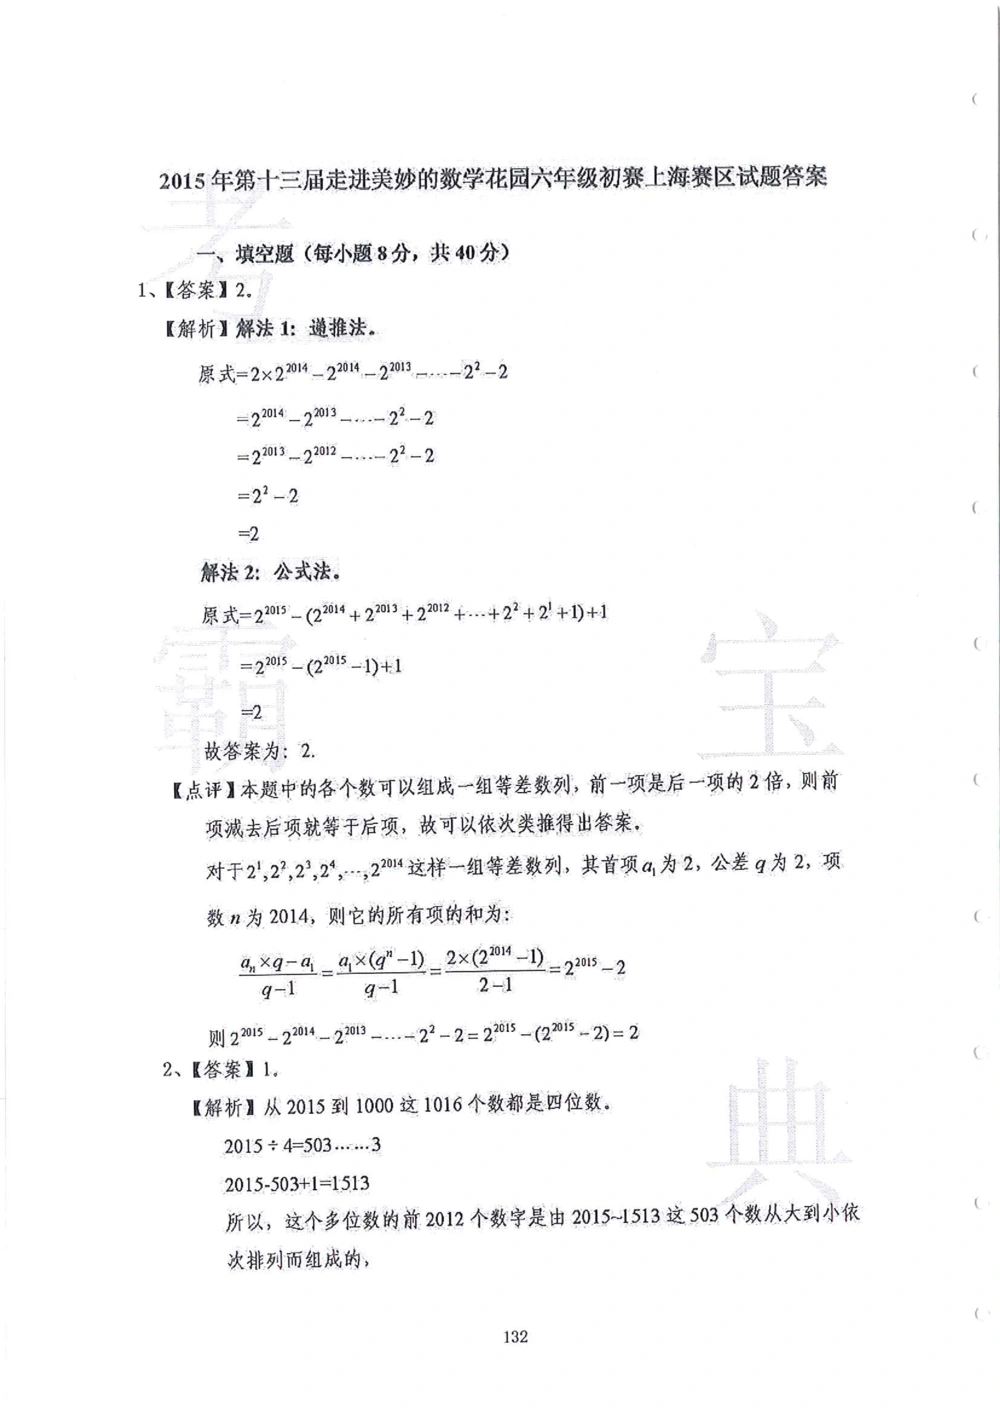 2015年第十三届走进美妙的数学花园六年级初赛上海赛区试题答案
一、填空题（每小题8分，共40分）
1、【答案】2。
【解析】解法1：递推法。
原式=2×2^2014－2^2014－2^2013－…－2^2－2
=2^2014－2^2013－…－2^2－2
=2^2013－2^2012－…－2^2－2
=2^2－2
=2
解法2：公式法。
原式=2^2015－(2^2014+2^2013+2^2012+…+2^2+2^1+1)+1
=2^2015－(2^2015－1)+1
=2
故答案为：2.
【点评】本题中的各个数可以组成一组等差数列，前一项是后一项的2倍，则前
项减去后项就等于后项，故可以依次类推得出答案。
对于2^1,2^2,2^3,2^4,…,2^2014这样一组等差数列，其首项a₁为2，公差q为2，项
数n为2014，则它的所有项的和为：
(aₙ×q－a₁)/(q－1)=(a₁×(q^n－1))/(q－1)=(2×(2^2014－1))/(2－1)=2^2015－2
则2^2015－2^2014－2^2013－…－2^2－2=2^2015－(2^2015－2)=2
2、【答案】1。
【解析】从2015到1000这1016个数都是四位数。
2015÷4=503……3
2015-503+1=1513
所以，这个多位数的前2012个数字是由2015~1513这503个数从大到小依
次排列而组成的，
132
考
霸
宝
典